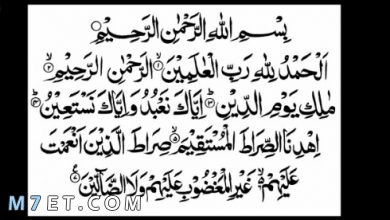 بِسْمِ اللهِ الرَّحْمٰنِ الرَّحِيْمِ
اَلْحَمْدُ لِلّٰهِ رَبِّ الْعٰلَمِيْنَ ۙ﴿۱﴾ الرَّحْمٰنِ الرَّحِيْمِ ۙ﴿۲﴾
مٰلِكِ يَوْمِ الدِّيْنِ ؕ﴿۳﴾ اِيَّاكَ نَعْبُدُ وَاِيَّاكَ نَسْتَعِيْنُ ؕ﴿۴﴾
اِهْدِنَا الصِّرَاطَ الْمُسْتَقِيْمَ ۙ﴿۵﴾ صِرَاطَ الَّذِيْنَ اَنْعَمْتَ
عَلَيْهِمْ ۙ۬ غَيْرِ الْمَغْضُوْبِ عَلَيْهِمْ وَلَا الضَّآلِّيْنَ
M7ET.COM